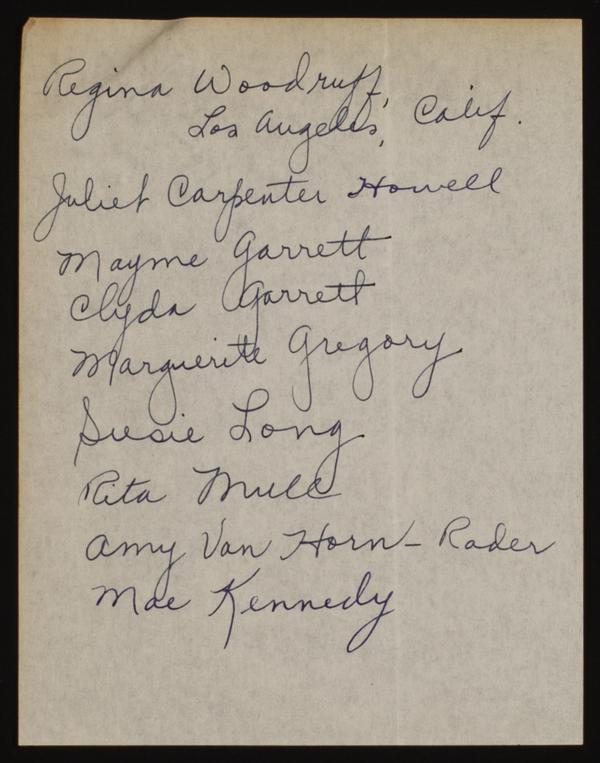 Regina Woodruff,
Los Angeles, Calif.
Juliet Carpenter Howell
Mayme Garrett
Clyda Garrett
Marguerite Gregory
Susie Long
Rita
Amy Van Horn - Rader
Mae Kennedy